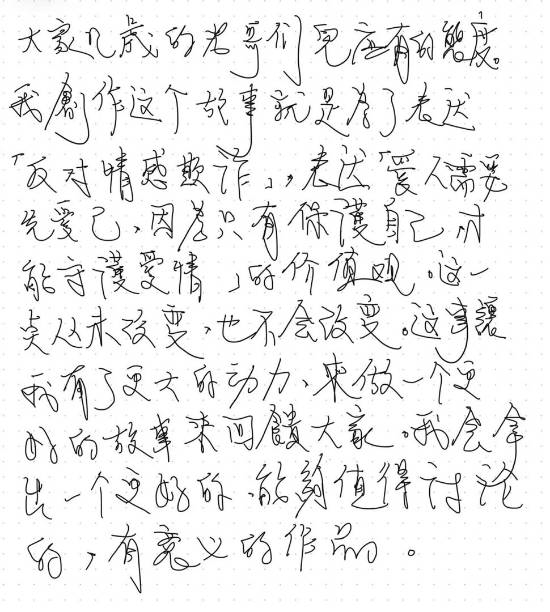 大家几歲的老哥们見应有的態度。
我創作这个故事就是為了表达
「反对情感欺诈」，表达「愛人需要
先愛己，因為只有保護自己才
能守護愛情」的价值观。这一
点从未改变，也不会改变。这事讓
我有了更大的动力，来做一个更
好的故事来回饋大家。我会拿
出一个更好的，能夠值得讨论
的，有意义的作品。